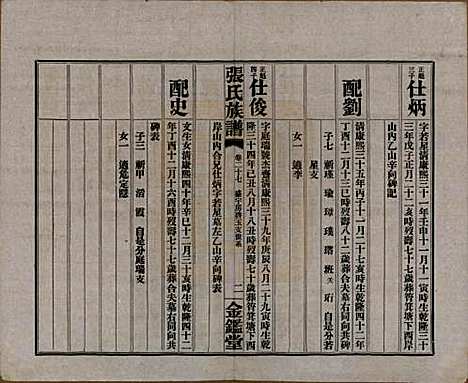 正題三子 仕炳
字若星清康熙三十一年壬申十一月十一寅時生乾隆三十
三年戊子正月二十二亥時歿壽七十七歲葬筲箕塘下西岸
山內乙山辛向碑記
配劉
清康熙三十五年丙子十一月二十七亥時生乾隆四十二年
丁酉十二月十三巳時歿壽八十二歲葬合夫墓右同向共碑
子七 新瑾 瑜 璋 璞 瑺 班 夭 珩 自是分若
星支
女一 適李
張氏族譜
卷二十七
二
金鑑堂
正題四子 仕俊
字庭瑞號太齋清康熙三十九年庚辰八月二十九寅時生乾
隆三十四年己丑八月十八丑時歿壽七十歲葬筲箕塘下西
岸山內合兄仕炳字若星墓左乙山辛向碑表
配史
文生女清康熙四十年辛巳十二月三十亥時生乾隆四十二
年丁酉十二月十六酉時歿壽七十七歲葬合夫墓右同向共
碑表
子三 新甲 治 霞 自是分庭瑞支
女一 適危定隱